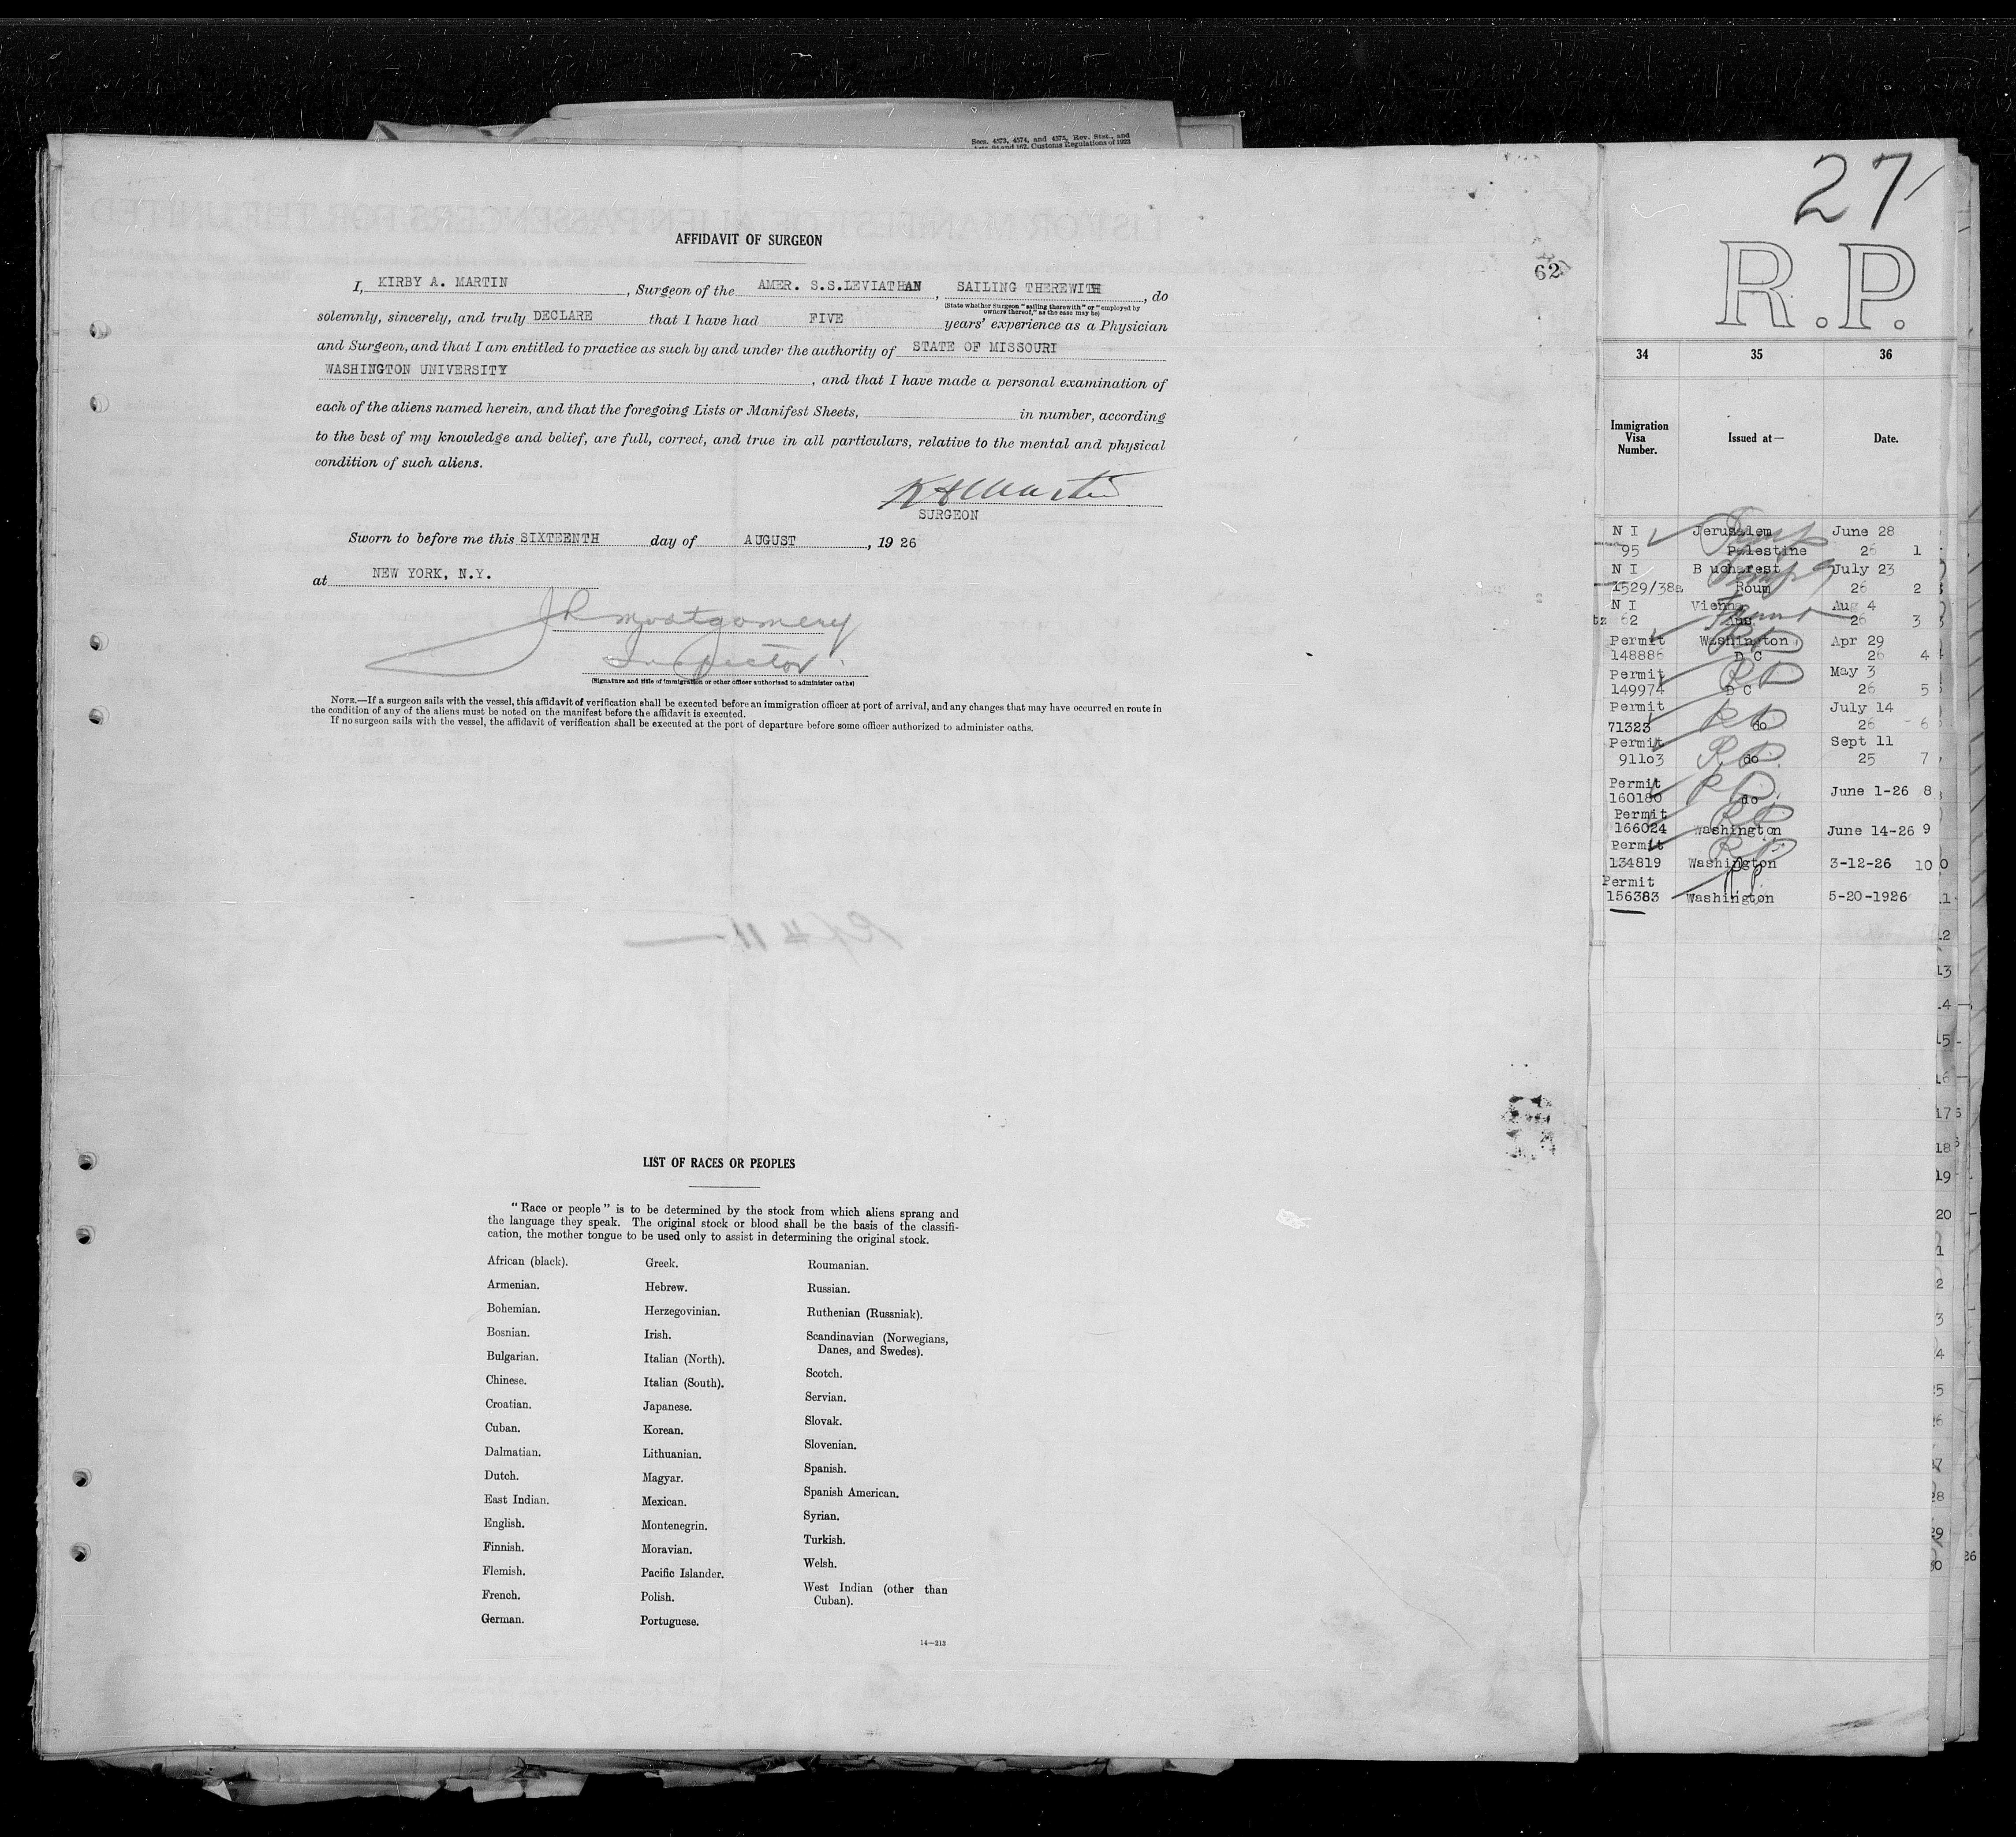 Secs. 4573, 4574, and 4575, Rev. Stat., and
and 162, Customs Regulations of 1923
AFFIDAVIT OF SURGEON
62
I, KIRBY A. MARTIN, Surgeon of the AMER. S.S.LEVIATHAN, SAILING THEREWITH, do
(State whether Surgeon "sailing therewith" or "employed by
owners thereof," as the case may be)
solemnly, sincerely, and truly DECLARE that I have had FIVE years' experience as a Physician
and Surgeon, and that I am entitled to practice as such by and under the authority of STATE OF MISSOURI
WASHINGTON UNIVERSITY, and that I have made a personal examination of
each of the aliens named herein, and that the foregoing Lists or Manifest Sheets, in number, according
to the best of my knowledge and belief, are full, correct, and true in all particulars, relative to the mental and physical
condition of such aliens.
K A Martin
SURGEON
Sworn to before me this SIXTEENTH day of AUGUST, 1926
at NEW YORK, N.Y.
JR Montgomery
Inspector.
(Signature and title of immigration or other officer authorized to administer oaths)
NOTE.—If a surgeon sails with the vessel, this affidavit of verification shall be executed before an immigration officer at port of arrival, and any changes that may have occurred en route in
the condition of any of the aliens must be noted on the manifest before the affidavit is executed.
If no surgeon sails with the vessel, the affidavit of verification shall be executed at the port of departure before some officer authorized to administer oaths.
LIST OF RACES OR PEOPLES
"Race or people" is to be determined by the stock from which aliens sprang and
the language they speak. The original stock or blood shall be the basis of the classifi-
cation, the mother tongue to be used only to assist in determining the original stock.
African (black).
Armenian.
Bohemian.
Bosnian.
Bulgarian.
Chinese.
Croatian.
Cuban.
Dalmatian.
Dutch.
East Indian.
English.
Finnish.
Flemish.
French.
German.
Greek.
Hebrew.
Herzegovinian.
Irish.
Italian (North).
Italian (South).
Japanese.
Korean.
Lithuanian.
Magyar.
Mexican.
Montenegrin.
Moravian.
Pacific Islander.
Polish.
Portuguese.
Roumanian.
Russian.
Ruthenian (Russniak).
Scandinavian (Norwegians,
Danes, and Swedes).
Scotch.
Servian.
Slovak.
Slovenian.
Spanish.
Spanish American.
Syrian.
Turkish.
Welsh.
West Indian (other than
Cuban).
14—213
27
R.P.
34 35 36
Immigration
Visa
Number.
Issued at—
Date.
N I Jerusalem June 28
95 Palestine 26 1
N I Bucharest July 23
1529/38a Roum 26 2
N I Vienna Aug 4
tz 62 Aus 26 3
Permit Washington Apr 29
148886 D C 26 4
Permit May 3
149974 D C 26 5
Permit July 14
71323 do 26 6
Permit Sept 11
91103 do 25 7
Permit
160180 do June 1-26 8
Permit
166024 Washington June 14-26 9
Permit
134819 Washington 3-12-26 10
Permit
156383 Washington 5-20-1926